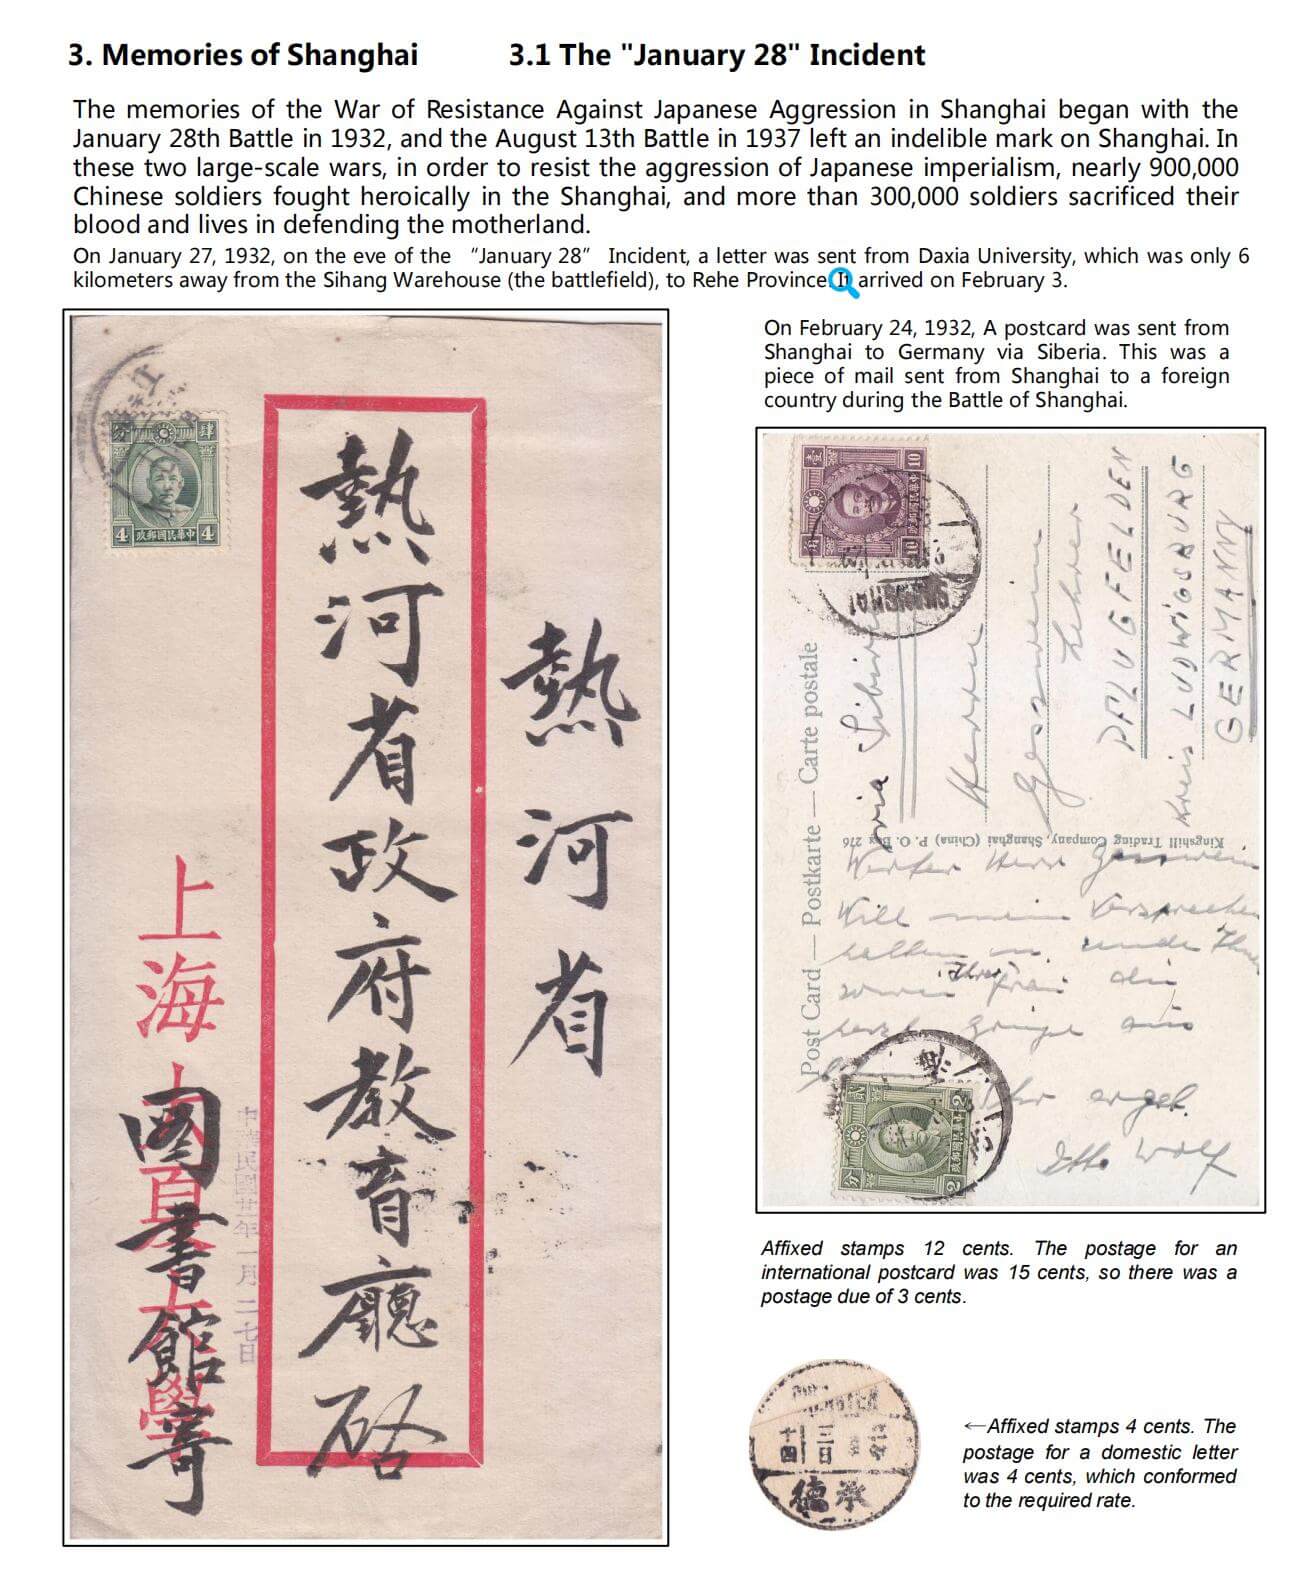 3. Memories of Shanghai
3.1 The "January 28" Incident
The memories of the War of Resistance Against Japanese Aggression in Shanghai began with the
January 28th Battle in 1932, and the August 13th Battle in 1937 left an indelible mark on Shanghai. In
these two large-scale wars, in order to resist the aggression of Japanese imperialism, nearly 900,000
Chinese soldiers fought heroically in the Shanghai, and more than 300,000 soldiers sacrificed their
blood and lives in defending the motherland.
On January 27, 1932, on the eve of the “January 28” Incident, a letter was sent from Daxia University, which was only 6
kilometers away from the Sihang Warehouse (the battlefield), to Rehe Province. It arrived on February 3.
熱河省
熱河省政府教育廳啓
分 肆
4 政郵國民華中 4
上海大夏大學
圖書館寄
中華民國廿一年一月二七日
On February 24, 1932, A postcard was sent from
Shanghai to Germany via Siberia. This was a
piece of mail sent from Shanghai to a foreign
country during the Battle of Shanghai.
10 10
SHANGHAI
Post Card — Postkarte — Carte postale
via
Herrn
Lehrer
PFLUGFELDEN
Kreis LUDWIGSBURG
GERMANNY
Kingshill Trading Company, Shanghai (China) P. O. Box 276
Werter Herr
Will mein Versprechen
halten
Ihr ergeb.
Otto Wolf
分 貳
2 政郵國民華中 2
Affixed stamps 12 cents. The postage for an
international postcard was 15 cents, so there was a
postage due of 3 cents.
德承
←Affixed stamps 4 cents. The
postage for a domestic letter
was 4 cents, which conformed
to the required rate.